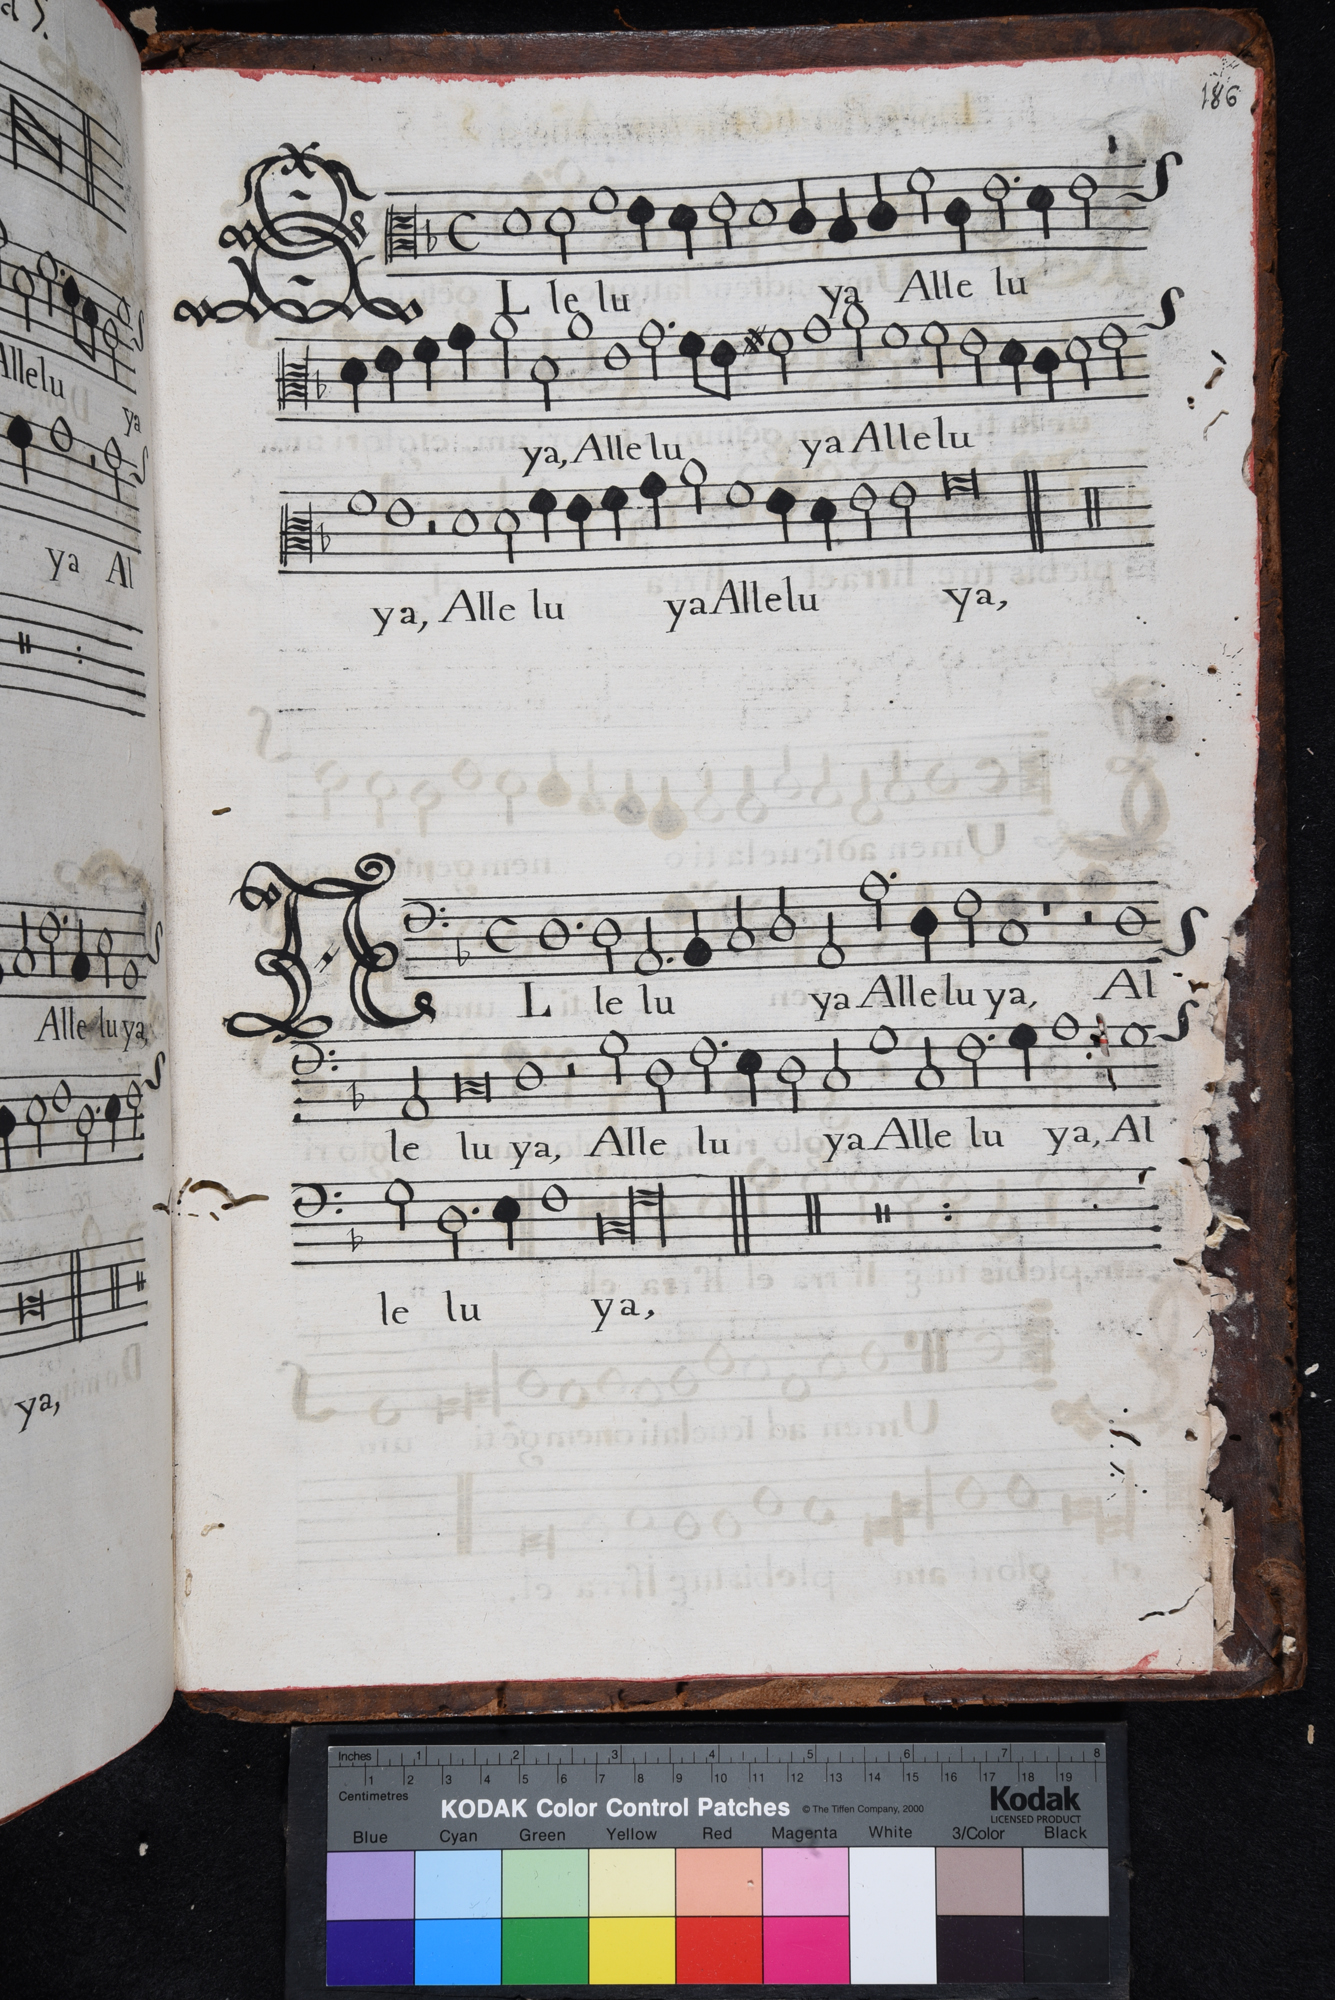 186
AL le lu ya Alle lu
ya, Alle lu ya Alle lu
ya, Alle lu ya Alle lu ya,
AL le lu ya Alle lu ya, Al
le lu ya, Alle lu ya Alle lu ya, Al
le lu ya,
Allelu ya
ya Al
Alle lu ya
ya,
Inches 1 2 3 4 5 6 7 8
1 2 3 4 5 6 7 8 9 10 11 12 13 14 15 16 17 18 19
Centimetres
KODAK Color Control Patches © The Tiffen Company, 2000 Kodak
LICENSED PRODUCT
Blue Cyan Green Yellow Red Magenta White 3/Color Black